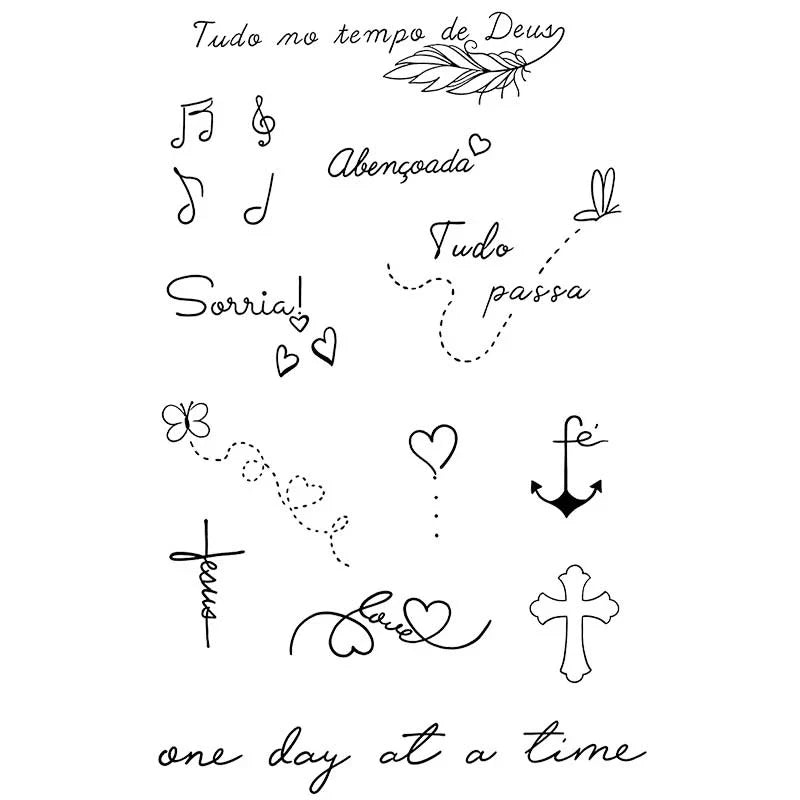 Tudo no tempo de Deus
Abençoada
Tudo
passa
Sorria!
fé
Jesus
love
one day at a time